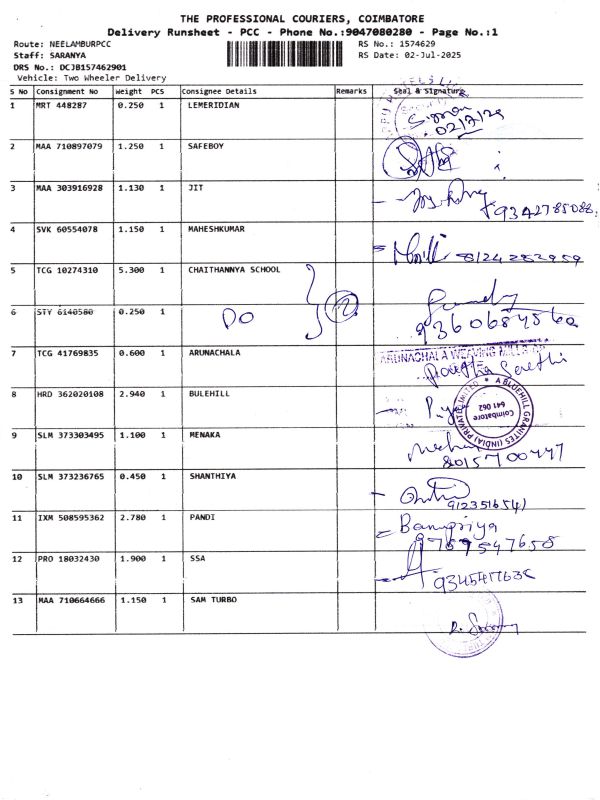 THE PROFESSIONAL COURIERS, COIMBATORE
Delivery Runsheet - PCC - Phone No.:9047080280 - Page No.:1
Route: NEELAMBURPCC
Staff: SARANYA
DRS No.: DCJB157462901
Vehicle: Two Wheeler Delivery
RS No.: 1574629
RS Date: 02-Jul-2025
S No Consignment No Weight PCS Consignee Details Remarks Seal & Signature
1 MRT 448287 0.250 1 LEMERIDIAN
02/7/25
2 MAA 710897079 1.250 1 SAFEBOY
3 MAA 303916928 1.130 1 JIT
9342785088
4 SVK 60554078 1.150 1 MAHESHKUMAR
8124282959
5 TCG 10274310 5.300 1 CHAITHANNYA SCHOOL
6 STY 6140580 0.250 1 DO
2
9360684560
7 TCG 41769835 0.600 1 ARUNACHALA
ARUNACHALA WEAVING MILLS
8 HRD 362020108 2.940 1 BULEHILL
A BLUEHILL GRANITES (INDIA) PRIVATE LIMITED
Coimbatore
641 062
9 SLM 373303495 1.100 1 MENAKA
8015700447
10 SLM 373236765 0.450 1 SHANTHIYA
912351654)
11 IXM 508595362 2.780 1 PANDI
Banupriya
9789547658
12 PRO 18032430 1.900 1 SSA
13 MAA 710664666 1.150 1 SAM TURBO